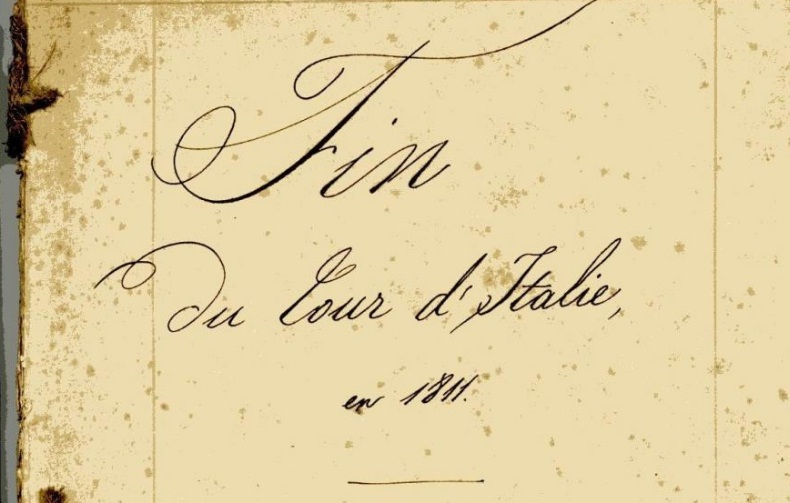 Fin
Du Tour d'Italie,
en 1811.